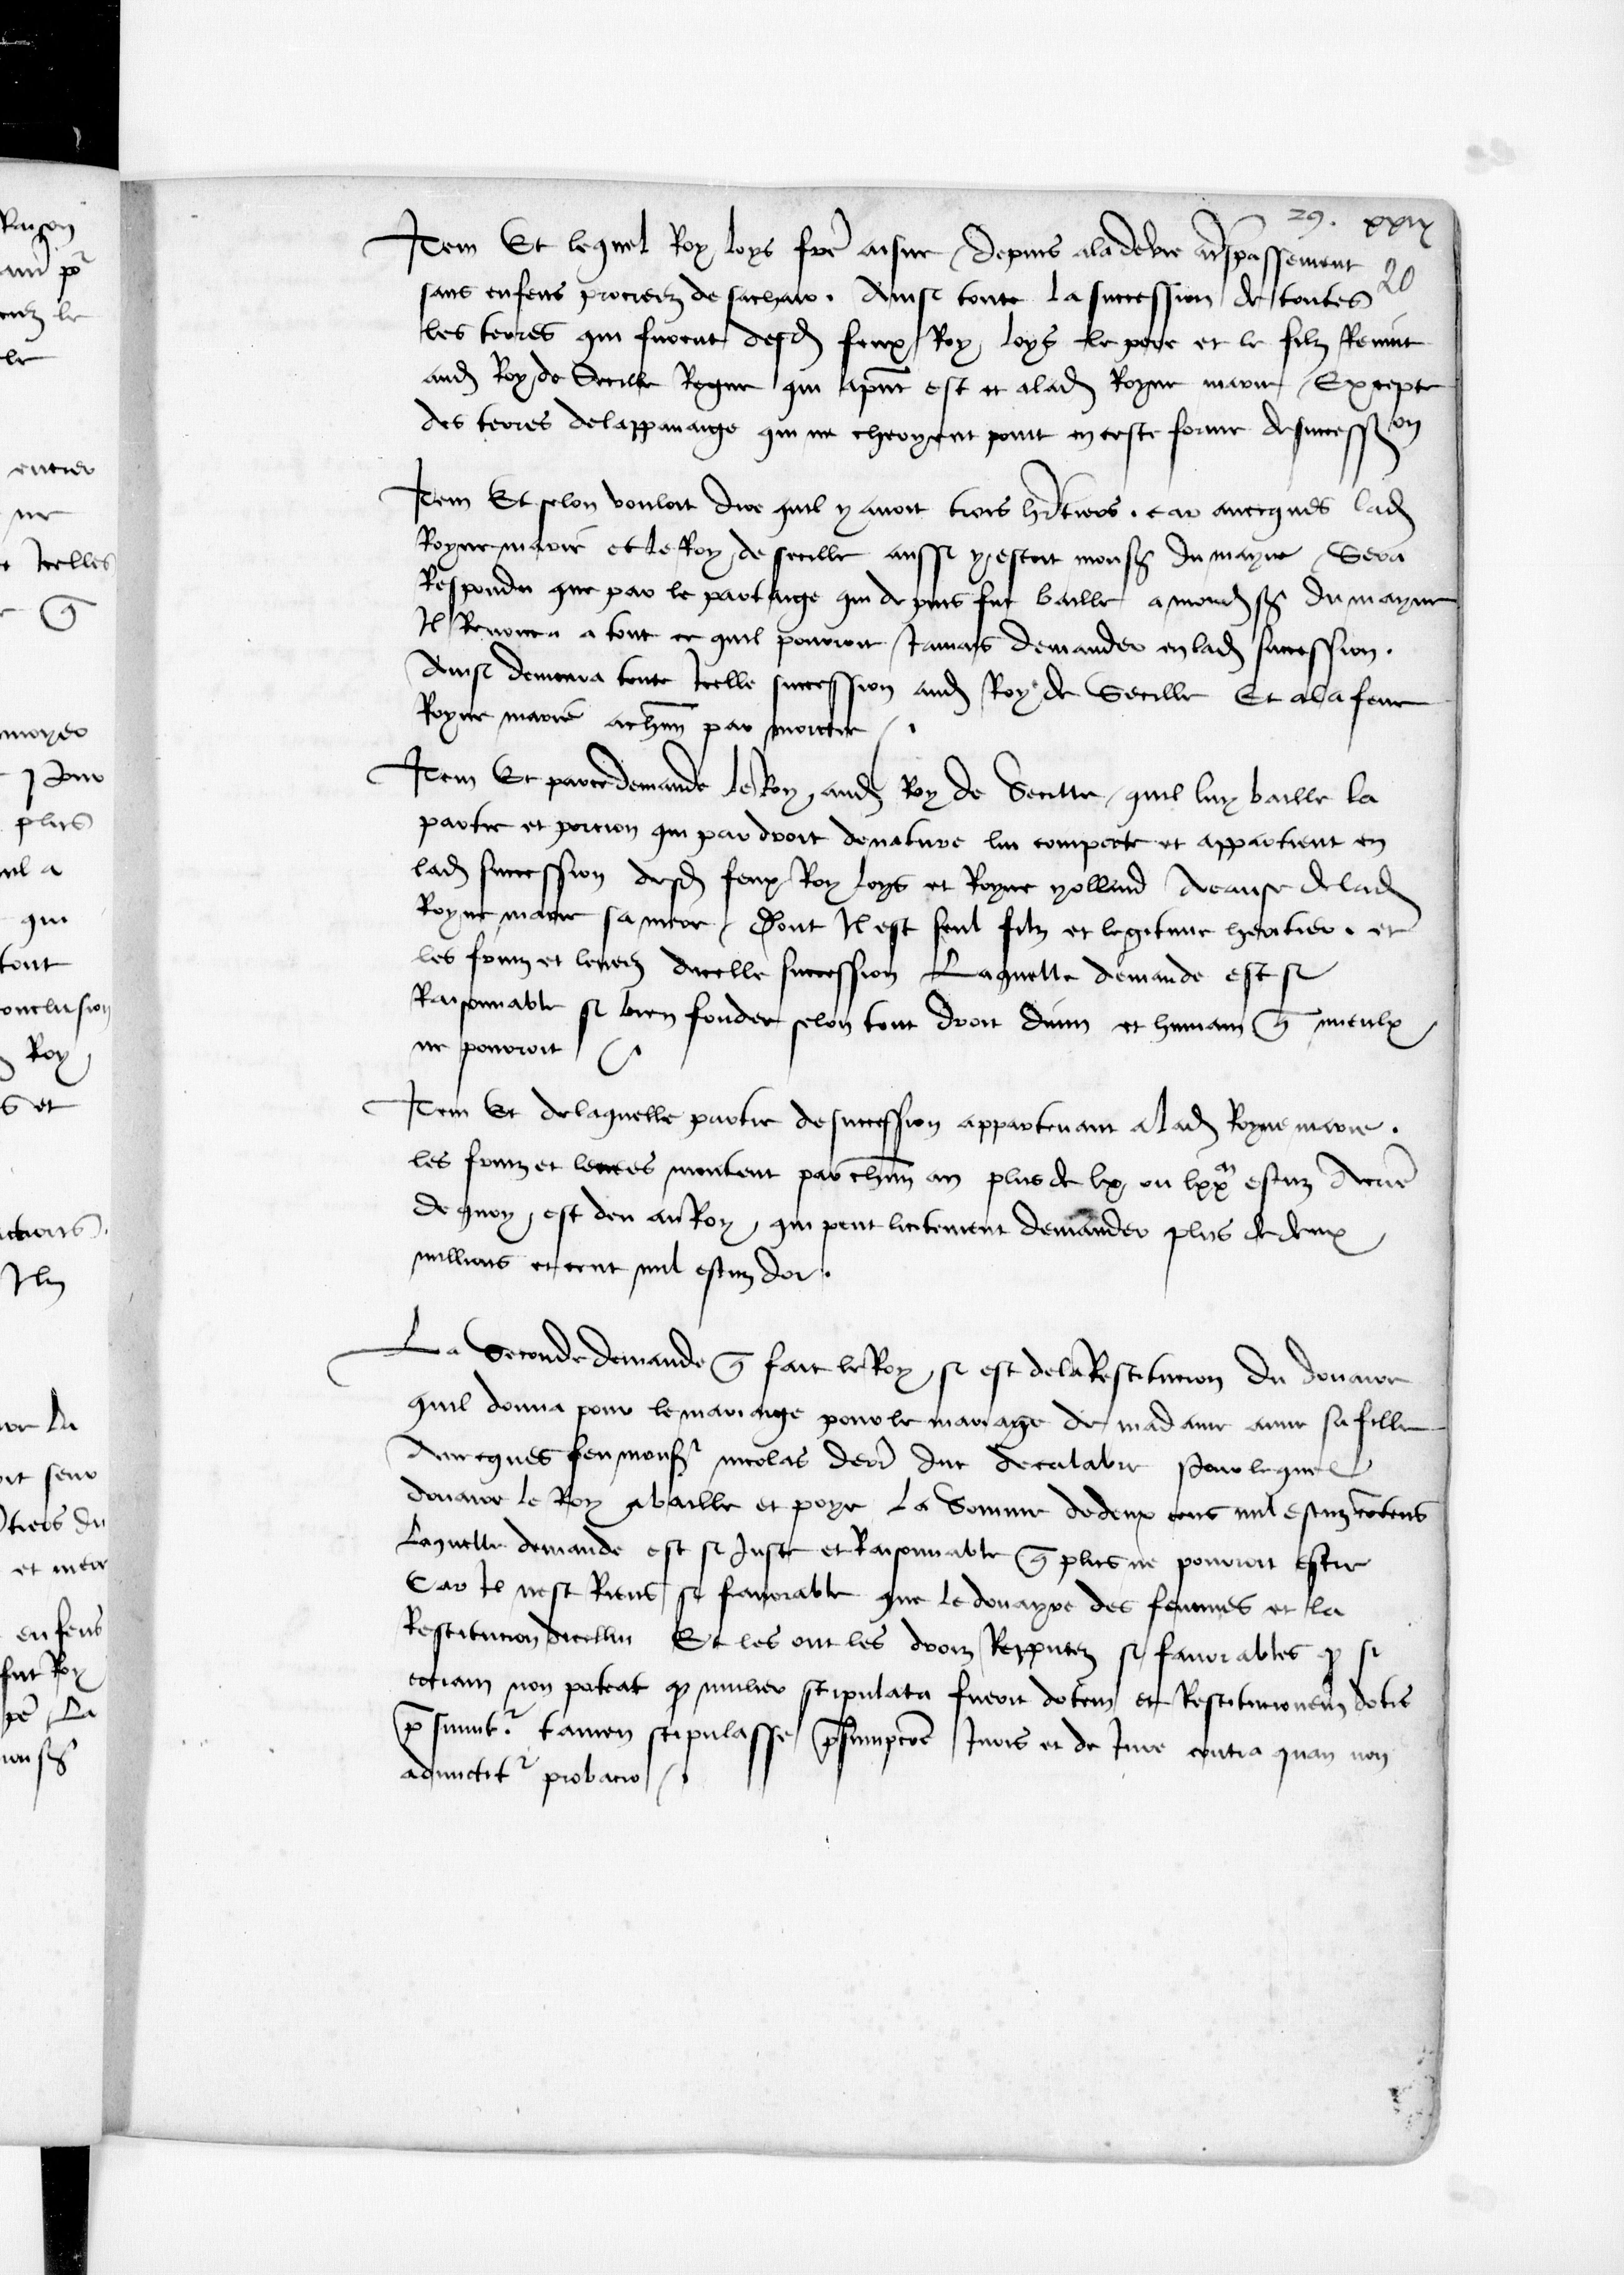 29. xxix
20
Item Et lequel Roy loys frē aisne depuis ala de vie a trespassement
sans enfens procreez de sa chair. Ainsi toute la succession de toutes
les terres qui furent desd feux Roy loys le pere et le filz Revint
aud Roy de Secille Regne qui apn̄t est et a lad Royne marie Excepte
des terres de lappanaige qui ne cheoyent point en ceste forme de succession
Item Et se lon vouloit dire quil y avoit trois hr̄tiers. car avecques lad
Royne marie et le Roy de secille aussi y estoit mons du mayne Sera
Respondu que par le partaige qui depuis fut baille a mond s du mayne
Il Renonca a tout ce quil pourroit Jamais demander en lad succession.
Ainsi demeura toute Icelle succession aud Roy de Secille Et a la feue
Royne marie a chūn par moictie
Item Et par ce demande le Roy aud Roy de Secille quil luy baille la
partie et porcion qui par droit de nature lui compecte et appartient en
lad succession desd feux Roy loys et Royne yolland A cause de lad
Royne marie sa mere Dont Il est seul filz et legitime heritier. et
les fruiz et levees dicelle succession Laquelle demande est si
Raisonnable si bien fondee selon tout droit divin et humain q̄ mieulx
ne pourroit
Item Et de laquelle partie de succession appartenant a lad Royne marie.
les fruiz et levees montent par chūn an plus de lx ou lxx m escuz A ceste
de quoy est deu au Roy qui peut licitement demander plus de deux
millions et cent mil escuz dor.
La Seconde demande q̄ fait le Roy si est de la Restitucion du douaire
quil donna pour le mariaige pour le mariage de madame anne sa fille
Avecques feu monsr nicolas derr̄ duc de calabre Pour lequel
douaire le Roy a baille et poye La Somme de deux cens mil escuz cōtens
Laquelle demande est si Juste et Raisonnable q̄ plus ne pourroit estre
Car Il nest Riens si favorable que le douayre des femmes et la
Restitucion dicellui Et les ont les droiz Repputez si favorables q si
eciam non peteat q mulier stipulata fuerit dotem et Restitucionem dotis
p̄sumit.r tamen stipulasse p̄sumpcōe Juris et de Jure contra quam non
admictitr probacio